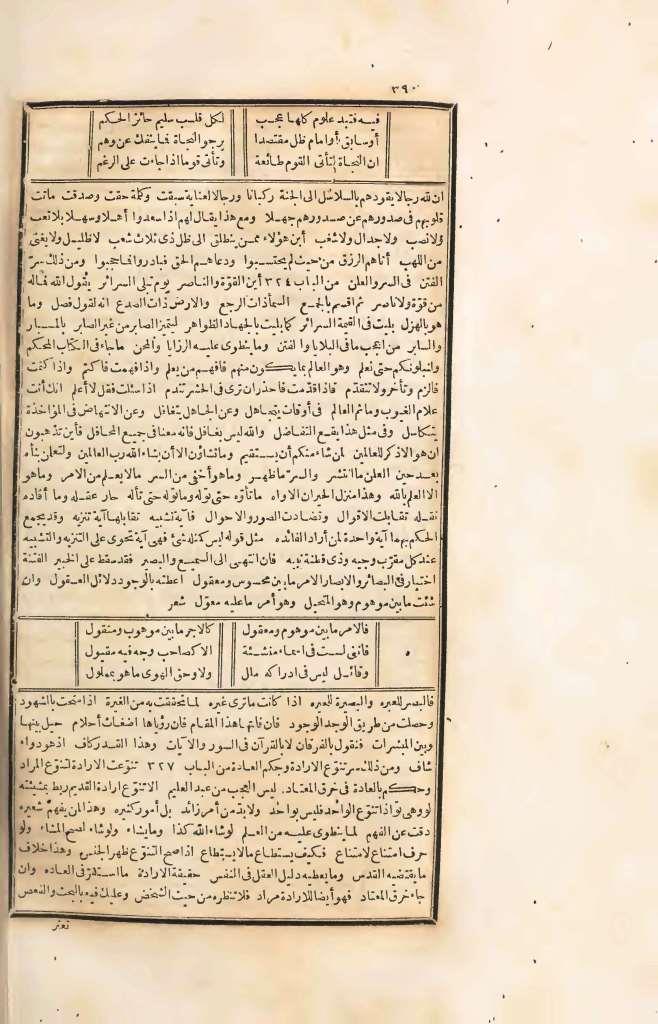 ٣٩٠
فيه فتبدو علوم كلها عجب لكل قلب سليم حائز الحكم
أو سابق أو امام ظل مقتصدا يرجو النجاة فما ينفك عن وهم
ان النجاة لتأتى القوم طائعة وتأتى قوما اذا جاءت على الرغم
ان لله رجالا يقودهم بالسلاسل الى الجنة ركبانا ورجالا لعناية سبقت وكلمة حقت وصدقت ماتت
قلوبهم فى صدورهم عن صدورهم جهلا ومع هذا يقال لهم اذا سعدوا أهلا وسهلا بلا تعب
ولا نصب ولا جدال ولا شغب أين هؤلاء ممن ينطلق الى ظل ذى ثلاث شعب لا ظليل ولا يغنى
من اللهب أتاهم الرزق من حيث لم يحتسبوا ودعاهم الحق فبادروا فما حجبوا ومن ذلك سرّ
الفتن فى السر والعلن من الباب ٣٢٤ أين القوّة والناصر يوم تبلى السرائر يقول الله فماله
من قوّة ولا ناصر ثم اقسم بالجمع السماء ذات الرجع والارض ذات الصدع انه لقول فصل وما
هو بالهزل بليت فى القيمة السرائر كما بليت بالجهاد الظواهر ليتميز الصابر من غير الصابر بالمسبار
والسابر من اعجب ما فى البلايا والفتن وما ينطوى عليه الرزايا والمحن ما جاء فى الكتاب المحكم
ولنبلونكم حتى نعلم وهو العالم بما يكون منهم فافهم من يعلم واذا فهمت فاكتم واذا كتمت
فالزم وتأخر ولا تتقدّم فاذا قدّمت فاحذر ان ترى فى الحشر تندم اذا سئلت فقل لا أعلم انك أنت
علام الغيوب وما ثم العالم فى أوقات يتجاهل وعن الجاهل يتغافل وعن الانتهاض فى المؤاخذة
يتكاسل وفى مثل هذا يقع التفاضل والله ليس بغافل فانه معنا فى جميع المحافل فأين تذهبون
ان هو الا ذكر للعالمين لمن شاء منكم أن يستقيم وما تشاؤن الا أن يشاء الله رب العالمين ولتعلمن نبأه
بعد حين العلن ما انتشر والسرّ ما ظهر وما هو أخفى من السر ما لا يعلم من الامر وما هو
الا العلم بالله وهذا منزل الحيران الاواه ما تأوّه حتى توّله وما توّله حتى تأله حار عقله وما أفاده
نقله تقابلت الاقوال وتضادت الصور والاحوال فآية تشبيه تقابلها آية تنزيه وقد يجمع
الحكم بهما آية واحدة لمن أراد الفائده مثل قوله ليس كمثله شئ فهى آية تحوى على التنزيه والتشبيه
عند كل مقرّب وجيه وذى فطنة نبيه فان انتهى الى السميع والبصير فقد سقط على الخبير الفتنة
اختبار فى البصائر والابصار الامر ما بين محسوس ومعقول أعطته بالوجود دلائل العقول وان
شئت ما بين موهوم وهو المتخيل وهو أمر ما عليه معوّل شعر
فالامر ما بين موهوم ومعقول كالاجر ما بين موهوب ومنقول
فاننى لست فى اسماء منشئة الا كصاحب وجه فيه مقبول
وقائل ليس فى ادراكه ملل ولا وحق الهوى ما هو بمملول
فالبصر للعبره والبصيرة للعبره اذا كانت ما ترى غيره لما تحققت به من الغيرة اذا منحت بالشهود
وحصلت من طريق الوجد الوجود فان فاتها هذا المقام فان رؤياها اضغاث أحلام حيل بينها
وبين المبشرات فنقول بالفرقان لا بالقرآن فى السور والآيات وهذا القدر كاف اذ هو دواء
شاف ومن ذلك سر تنوّع الارادة وحكم العادة من الباب ٣٢٧ تنوّعت الارادة لتنوّع المراد
وحكم بالعادة فى خرق المعتاد ليس العجب من عبد العليم الا تنوّع ارادة القديم ربط بمشيئته
لو وهى تو اذا تنوع الواحد فليس بواحد ولا بدّ من أمر زائد بل أمور كثيره وهذا لمن يفهم شعيره
دقت عن الفهم لما ينطوى عليه من العلم لو شاء الله كذا وما يشاء ولو شاء لصح المشاء ولو
حرف امتناع لامتناع فكيف يستطاع ما لا يستطاع اذا صح التنوّع ظهر الجنس وهذا خلاف
ما يقتضيه القدس وما يعطيه دليل العقل فى النفس حقيقة الارادة ما استقرّ فى العاده وان
جاء خرق المعتاد فهو أيضا للارادة مراد فلا تنظره من حيث الشخص وعليك فيه بالبحث والفحص